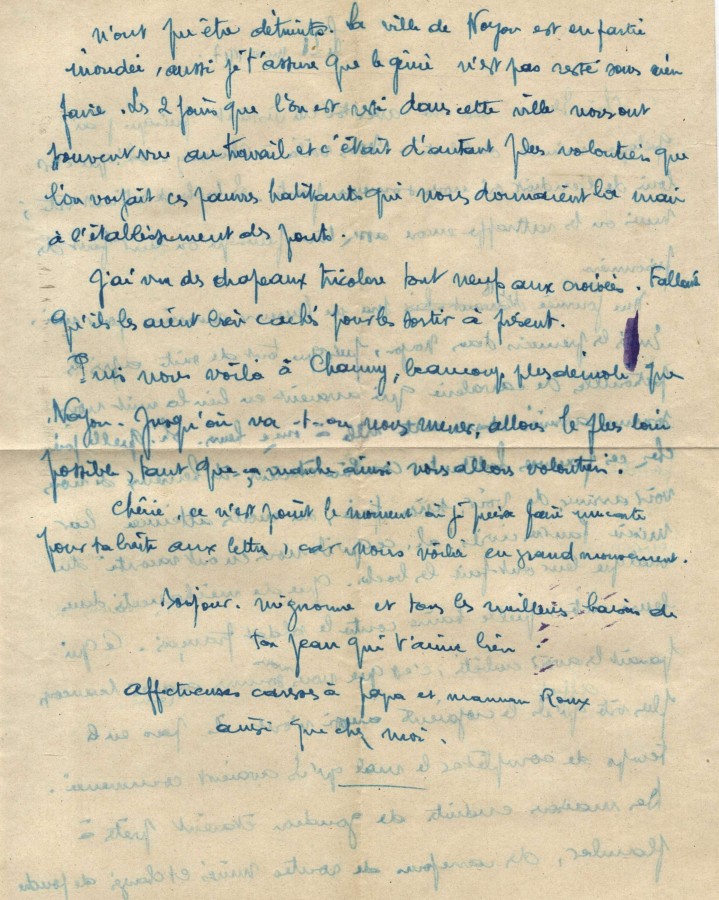 n'ont pu être détruits. La ville de Noyon est en partie
inondée, aussi je t'assure que le génie n'est pas resté sans rien
faire. Les 2 jours que l'on est resté dans cette ville nous ont
souvent vu au travail et c'était d'autant plus volontiers que
l'on voyait ces pauvres habitants qui nous donnaient la main
à l'établissement des ponts.
J'ai vu des drapeaux tricolore tout neufs aux croisées. Fallait
qu'ils les aient bien cachés pour les sortir à présent.
Puis nous voilà à Chauny, beaucoup plus démoli que
Noyon. Jusqu'où va-t-on nous mener, allons le plus loin
possible, tant que ça marche ainsi nous allons volontiers.
Chérie, ce n'est point le moment où je puisse faire
pour ta boîte aux lettres, car nous voilà en grand mouvement.
Bonjour mignonne et tous les meilleurs baisers de
ton Jean qui t'aime bien
Affectueuses caresses à papa et maman Roux
ainsi que chez moi.